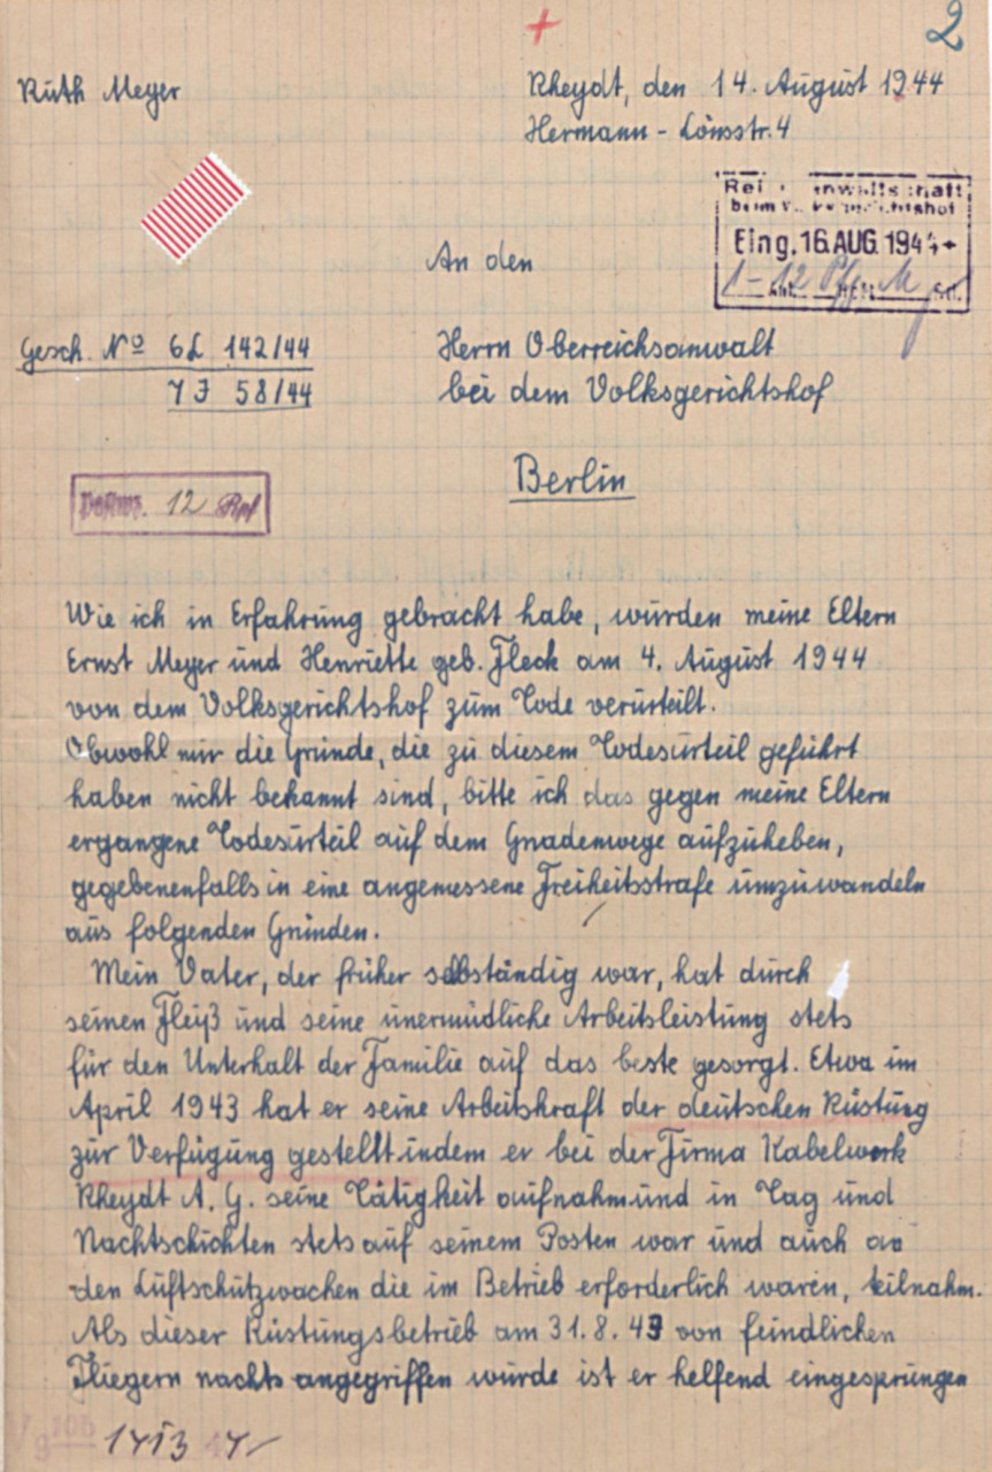 2
Ruth Meyer
Rheydt, den 14. August 1944
Hermann-Lönsstr. 4
Eing. 16. AUG. 1944
An den
Gesch. No 6L 142/44
7 J 58/44
Herrn Oberreichsanwalt
bei dem Volksgerichtshof
12 Rpf
Berlin
Wie ich in Erfahrung gebracht habe, wurden meine Eltern
Ernst Meyer und Henriette geb. Fleck am 4. August 1944
von dem Volksgerichtshof zum Tode verurteilt.
Obwohl mir die Gründe, die zu diesem Todesurteil geführt
haben nicht bekannt sind, bitte ich das gegen meine Eltern
ergangene Todesurteil auf dem Gnadenwege aufzuheben,
gegebenenfalls in eine angemessene Freiheitsstrafe umzuwandeln
aus folgenden Gründen.
Mein Vater, der früher selbständig war, hat durch
seinen Fleiß und seine unermüdliche Arbeitsleistung stets
für den Unterhalt der Familie auf das beste gesorgt. Etwa im
April 1943 hat er seine Arbeitskraft der deutschen Rüstung
zur Verfügung gestellt indem er bei der Firma Kabelwerk
Rheydt A. G. seine Tätigkeit aufnahm und in Tag und
Nachtschichten stets auf seinem Posten war und auch an
den Luftschutzwachen die im Betrieb erforderlich waren, teilnahm.
Als dieser Rüstungsbetrieb am 31.8.43 von feindlichen
Fliegern nachts angegriffen wurde ist er helfend eingesprungen